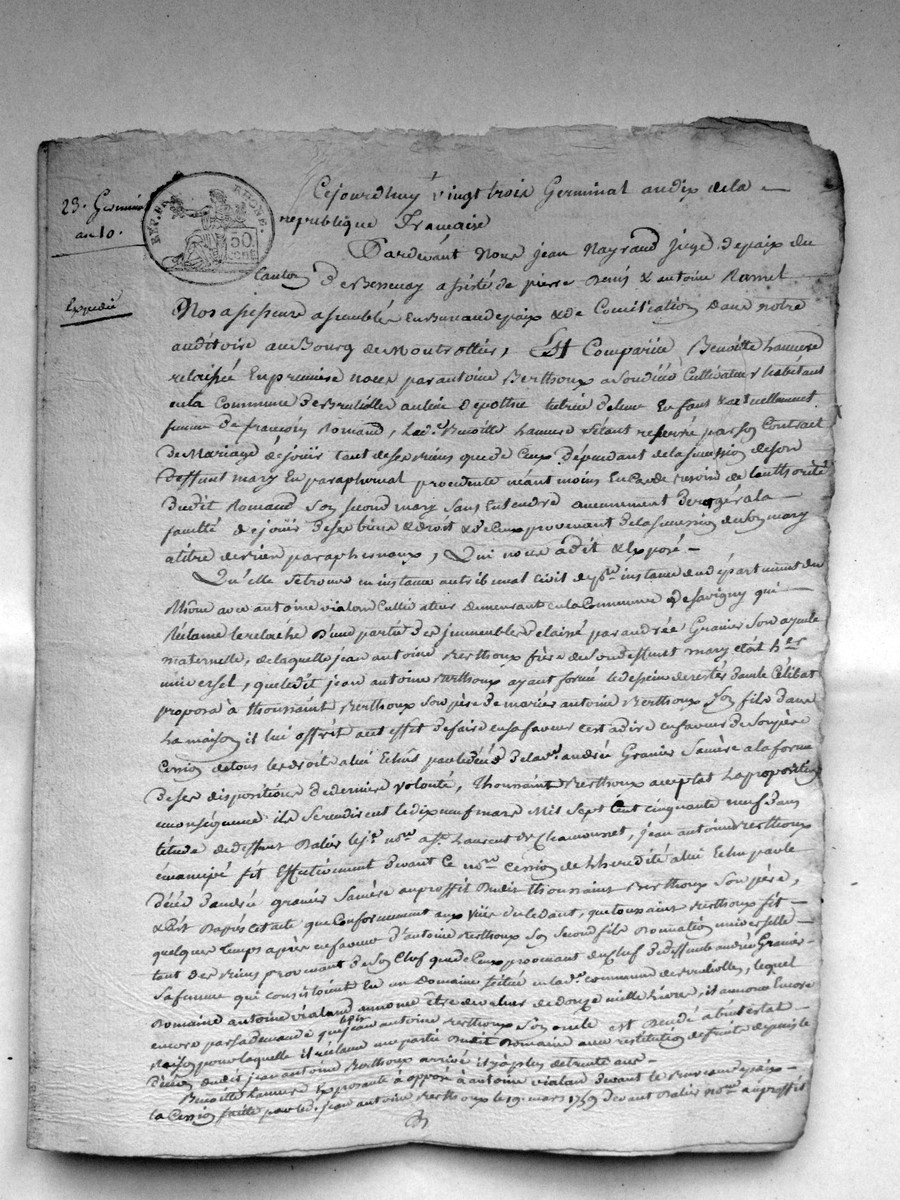 23. Germinal
an 10.
Expédié
REP. FRA. RHONE.
50
Cejourdhuy vingt trois Germinal an dix de la
republique Française
Pardevant Nous jean Nayrand juge de paix du
Canton De Bessenay assisté de pierre Denis & antoine Ramel
Nos assesseurs assemblés en Bureau de paix & de Conciliation Dans notre
auditoire au Bourg de Montrottier, Est Comparüe Benoitte
relaissée En premiere noces par antoine Berthoux a son décés Cultivateur habitant
en la Commune de Brullioles
femme De françois Romand, lad.e Benoitte s'étant reservée par son Contrat
De Mariage de joüir tant de ses biens que de Ceux Dépendant de la succession de son
deffunt mary En paraphernal procedente néant moins En Cas de besoin de l'authorité
Dudit Romand son second mary sans Entendre aucunement Déroger a la
faculté de joüir de ses biens & droits & de Ceux provenant de la succession du mary
a titre de bien paraphernaux, Qui nous a dit & Exposé
Qu'elle se trouve en instance au tribunal Civil de p.re instance du département du
Rhône avec antoine vialon Cultivateur demeurant en la Commune de Savigny qui
Réclame le relaché D'une partie des immeubles delaissé par andrée Granier son ayeule
maternelle, de laquelle jean antoine Berthoux frère du son deffunt mary etoit h.er
universel, que ledit jean antoine Berthoux ayant formé le dessein de rester dans le Célibat
proposa à Thoussaint Berthoux son père de marier antoine Berthoux son fils dans
sa maison il lui offrit a cet effet de faire en sa faveur c'est a dire en faveur de son père
Cession de tous les droits a lui Echus par le décès de lad.e andrée Granier sa mère a la forme
De ses dispositions de derniere volonté, Thoussaint Berthoux accepta la proposition
en conséquence ils se rendirent le dix neuf mars Mil Sept Cent cinquante neuf dans
l'étude de deffunt Balés No.re a St. Laurent de Chamousset, jean antoine Berthoux
emancipé fit Effectivement devant ce No.re Cession de l'heredité a lui Echue par le
Décés d'andrée granier sa mère au proffit dudit Thoussaint Berthoux son père,
& C'est D'aprés cet acte que Conformement aux vües du Cédant, que toussaint Berthoux fit
quelque temps après en faveur d'antoine Berthoux son second fils Donnation universelle
tant des biens provenant de son Chef que de Ceux provenant du chef de deffunte andrée Granier
sa femme qui consistoient En un domaine situé en lad.e commune de Brullioles, lequel
Domaine antoine vialand annonce être de valeur de douze mille livres, il annonce Encore
encore par sa demande que jean antoine Berthoux son oncle est Décédé ab intestat
raison pour laquelle il réclame une partie Dudit Domaine avec restitution de fruits depuis le
Décès dudit jean antoine Berthoux arrivé il y a plus de trente ans
Benoitte Exposante à opposé à antoine vialan devant le Bureau de paix
la Cession faite par led. jean antoine Berthoux le 19. mars 1759 devant Balés No.re au proffit